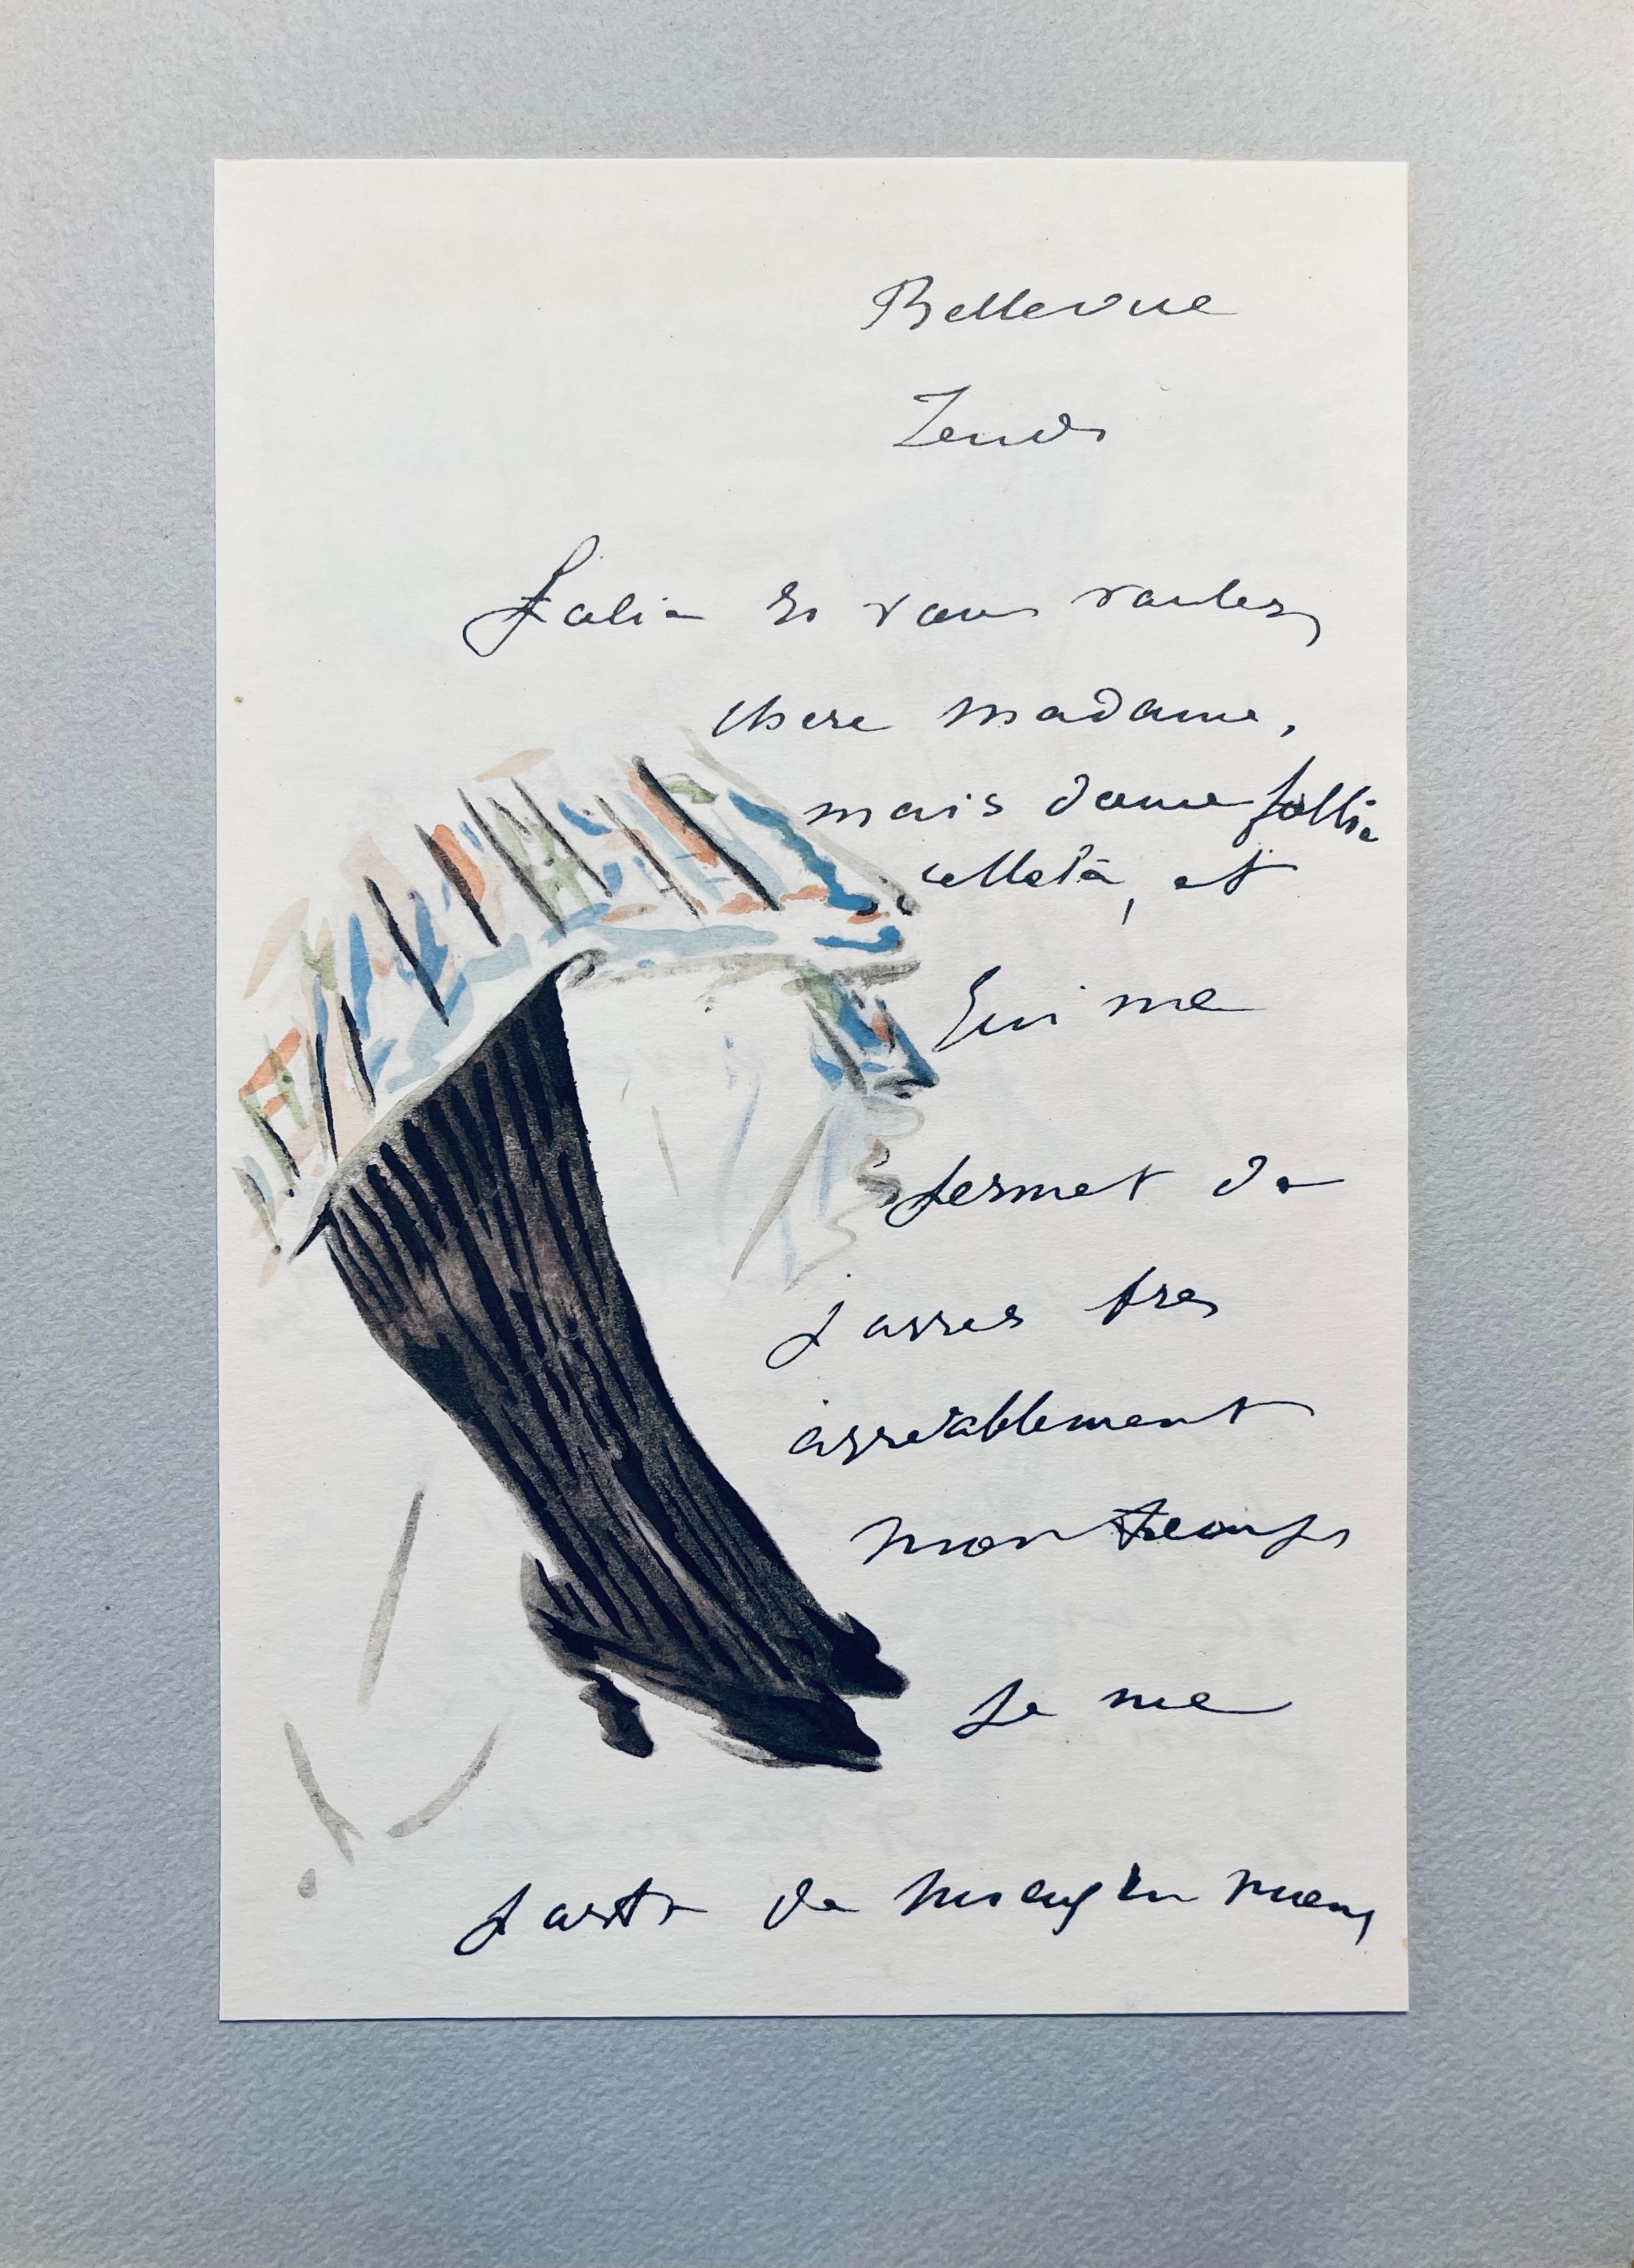 Bellevue
Jeudi
folie si vous voulez,
chere madame,
mais douce follie
cellelà, et
qui me
permet de
passer tres
agréablement
mon temps
Je me
porte de mieux en mieux